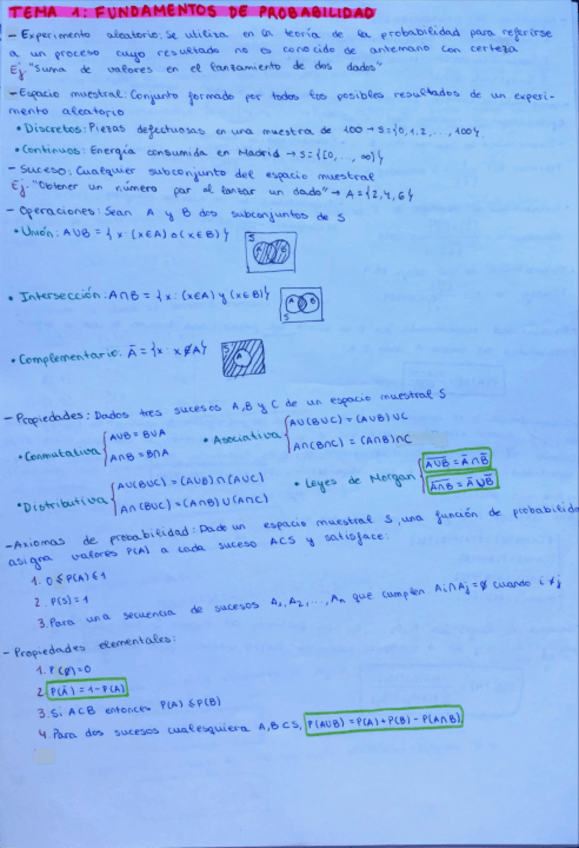 TEMA 1: FUNDAMENTOS DE PROBABILIDAD
- Experimento aleatorio: Se utiliza en la teoría de la probabilidad para referirse
a un proceso cuyo resultado no es conocido de antemano con certeza
Ej "Suma de valores en el lanzamiento de dos dados"
- Espacio muestral: Conjunto formado por todos los posibles resultados de un experi-
mento aleatorio
• Discretos: Piezas defectuosas en una muestra de 100 → S={0,1,2,...,100}
• Continuos: Energía consumida en Madrid → S={[0,...,∞)}
- Suceso: Cualquier subconjunto del espacio muestral
Ej: "Obtener un número par al lanzar un dado" → A={2,4,6}
- Operaciones: Sean A y B dos subconjuntos de S
• Unión: A∪B = { x: (x∈A) o (x∈B) }
S A B
• Intersección: A∩B = { x: (x∈A) y (x∈B)}
S A B
• Complementario: Ā = {x: x∉A}
S A
- Propiedades: Dados tres sucesos A,B y C de un espacio muestral S
• Conmutativa { A∪B = B∪A
A∩B = B∩A
• Asociativa { A∪(B∪C) = (A∪B)∪C
A∩(B∩C) = (A∩B)∩C
• Distributiva { A∪(B∪C) = (A∪B)∩(A∪C)
A∩(B∪C) = (A∩B)∪(A∩C)
• Leyes de Morgan { A̅∪̅B̅ = Ā∩B̅
A̅∩̅B̅ = Ā∪B̅
- Axiomas de probabilidad: Dado un espacio muestral S, una función de probabilida
asigna valores P(A) a cada suceso A⊂S y satisface:
1. 0≤P(A)≤1
2. P(S)=1
3. Para una secuencia de sucesos A₁,A₂,...,Aₙ que cumplen Aᵢ∩Aⱼ=∅ cuando i≠j
- Propiedades elementales:
1. P(∅)=0
2. P(Ā) = 1-P(A)
3. Si A⊂B entonces P(A)≤P(B)
4. Para dos sucesos cualesquiera A,B⊂S, P(A∪B) = P(A)+P(B)-P(A∩B)